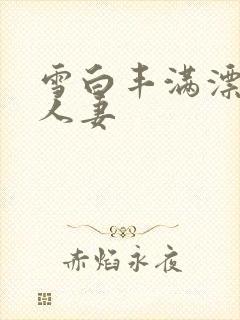 雪白丰满漂
人妻
赤焰永夜